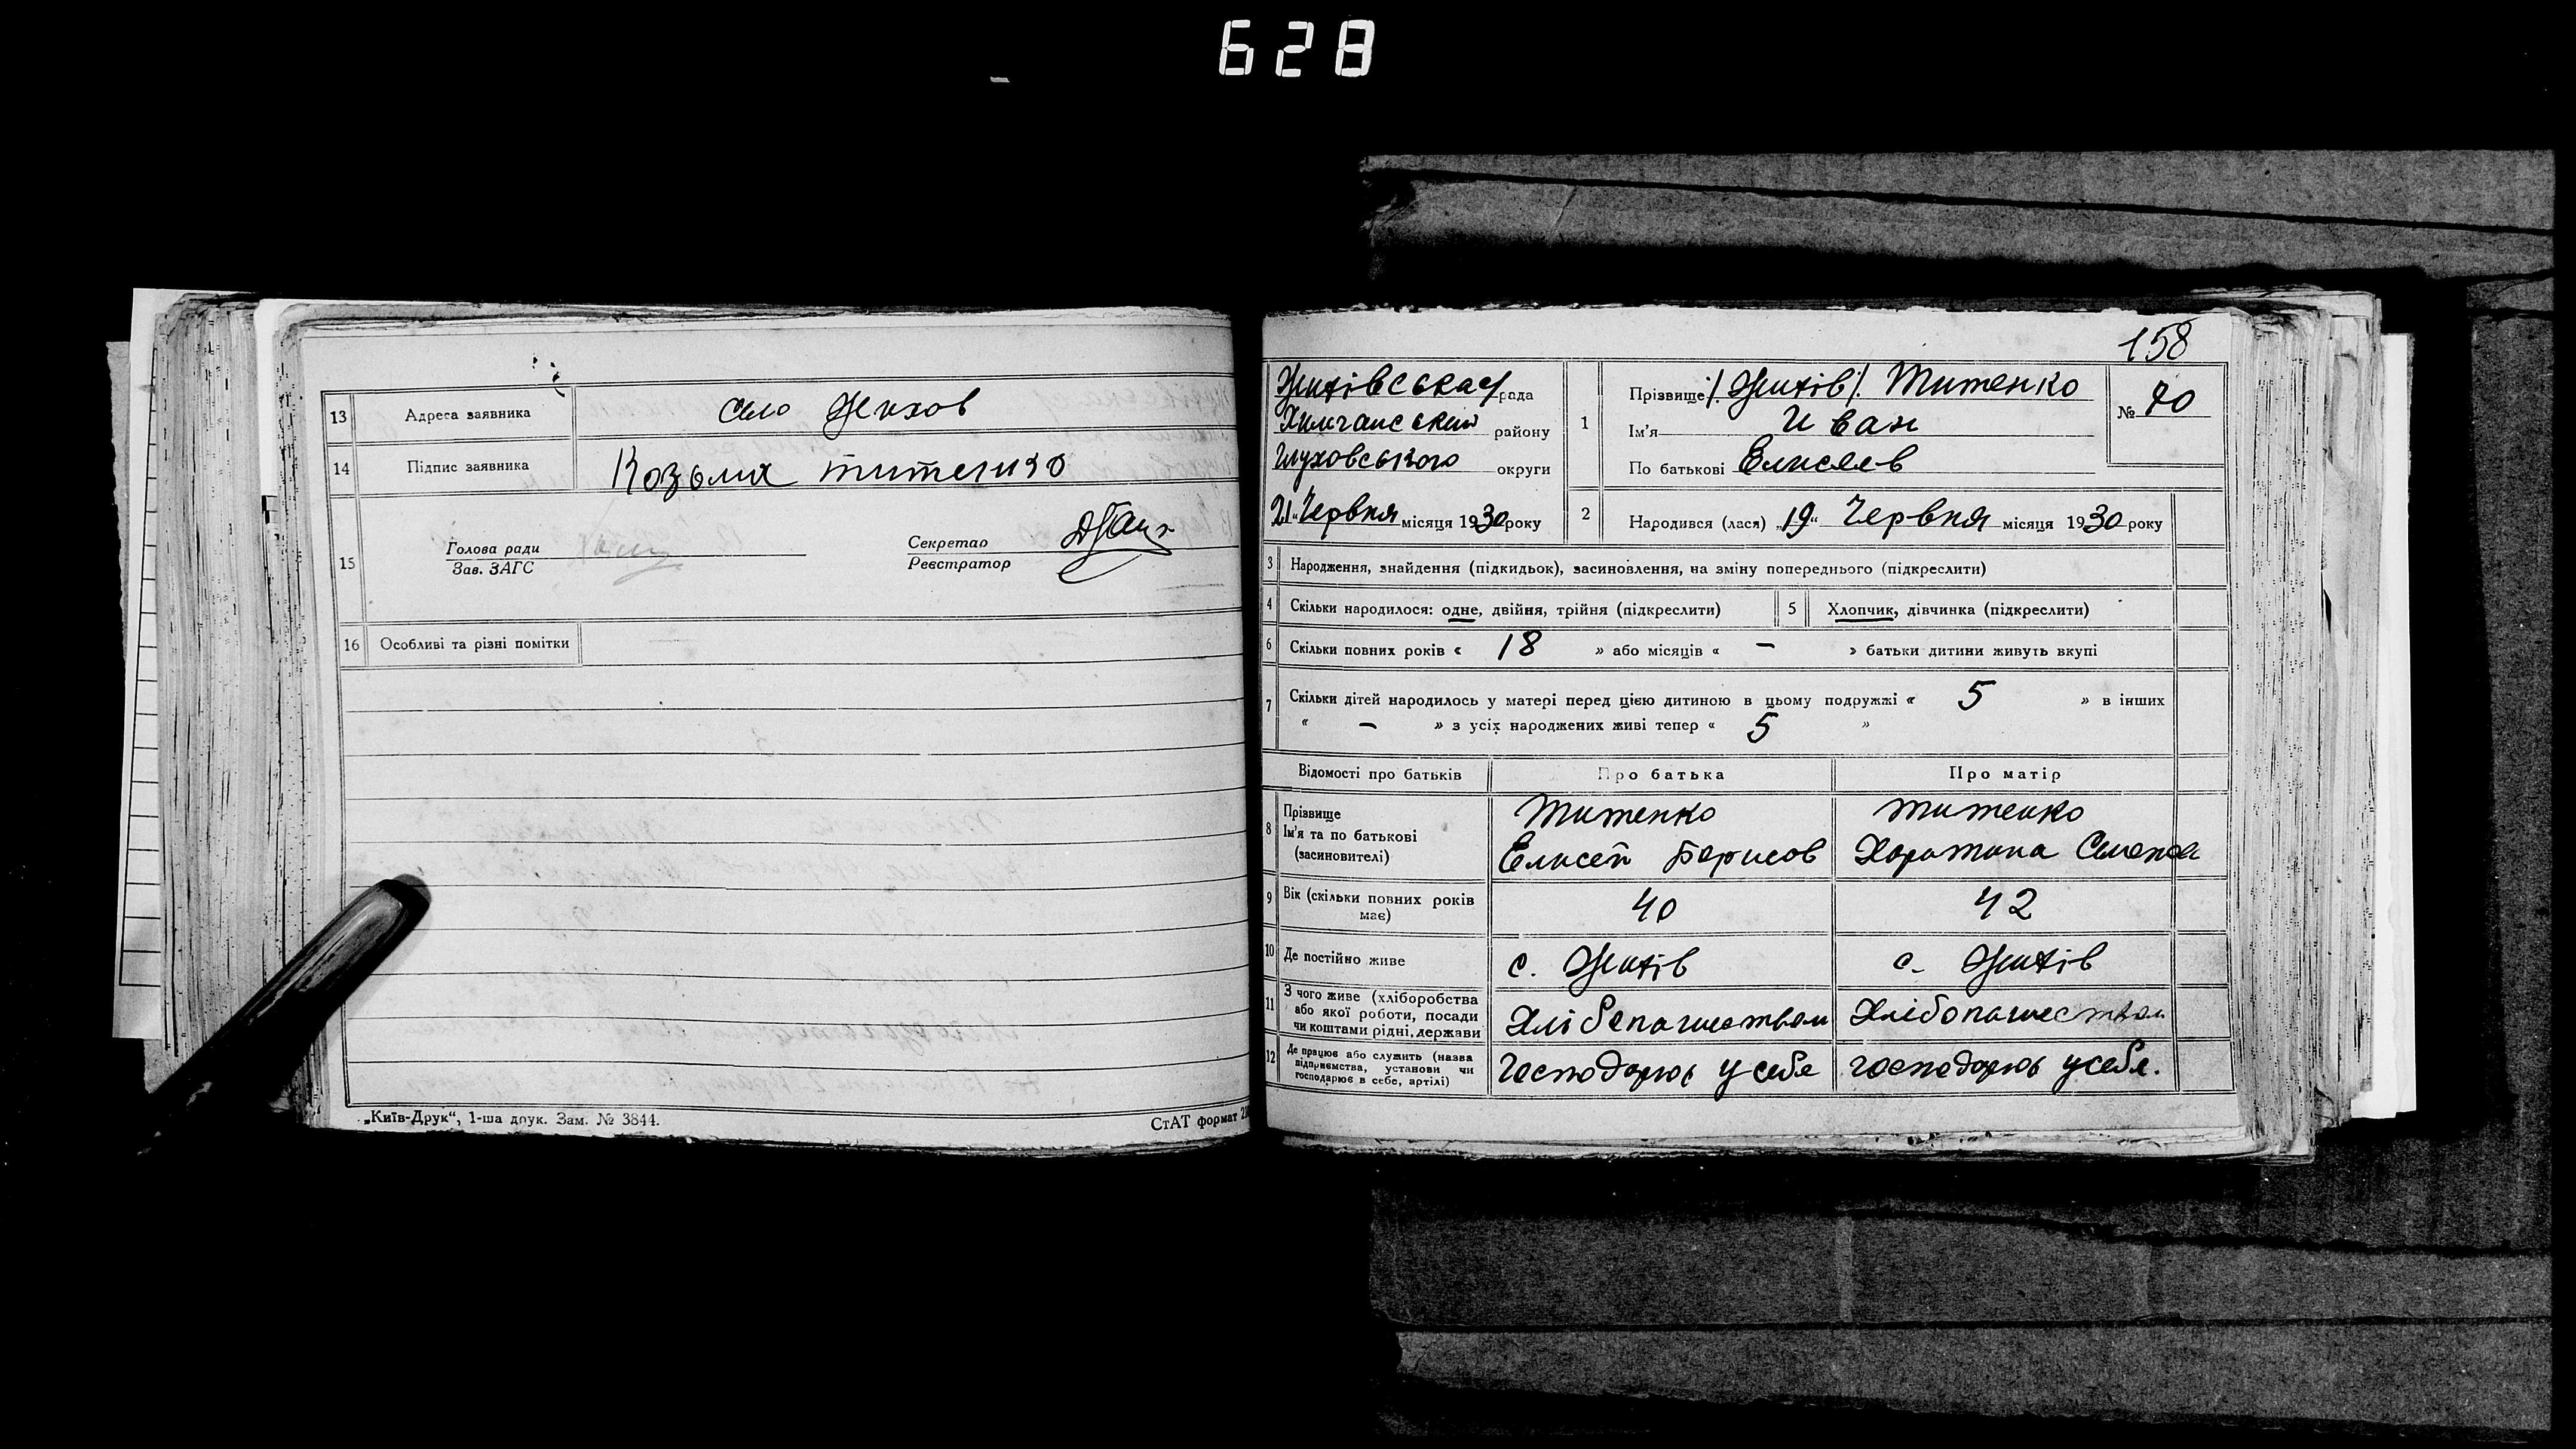 628
13 Адреса заявника село Жихов
14 Підпис заявника Козьма титенко
15 Голова ради
Зав. ЗАГС
Секретар
Реєстратор
16 Особливі та різні помітки
„Київ-Друк“, 1-ша друк. Зам. № 3844.
СтАТ формат
158
Жихівська рада
району
Глуховського округи
21 „ Червня місяця 1930 року
1 Прізвище /Жихів/. Титенко
Ім'я Иван
По батькові Елисеев
№ 70
2 Народився (лася) „19“ Червня місяця 1930 року
3 Народження, знайдення (підкидьок), засиновлення, на зміну попереднього (підкреслити)
4 Скільки народилося: одне, двійня, трійня (підкреслити)
5 Хлопчик, дівчинка (підкреслити)
6 Скільки повних років « 18 » або місяців « – » батьки дитини живуть вкупі
7 Скільки дітей народилось у матері перед цією дитиною в цьому подружжі « 5 » в інших
« – » з усіх народжених живі тепер « 5 »
Відомості про батьків Про батька Про матір
8 Прізвище
Ім'я та по батькові
(засиновителі)
Титенко
Елисей Борисов
титенко
9 Вік (скільки повних років
має)
40 42
10 Де постійно живе с. Жихів с. Жихів
11 З чого живе (хліборобства
або якої роботи, посади
чи коштами рідні, держави
Хлібопашеством Хлібопашеством
12 Де працює або служить (назва
підприємства, установи чи
господарює в себе, артілі)
господарює у себе господарює у себе.